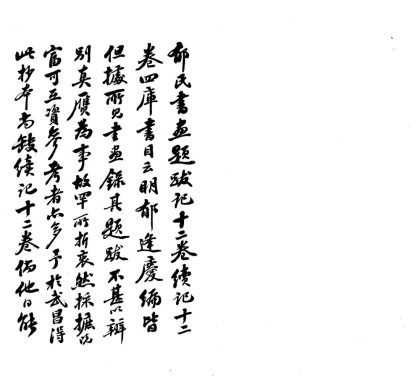 郁氏書畫題跋記十二卷續記十二
卷四庫書目云明郁逢慶編皆
但據所見書畫錄其題跋不甚以辨
別真贋為事故罕所折衷然採摭既
富可互資參考者亦多予於武昌得
此抄本尚缺續記十二卷倘他日能